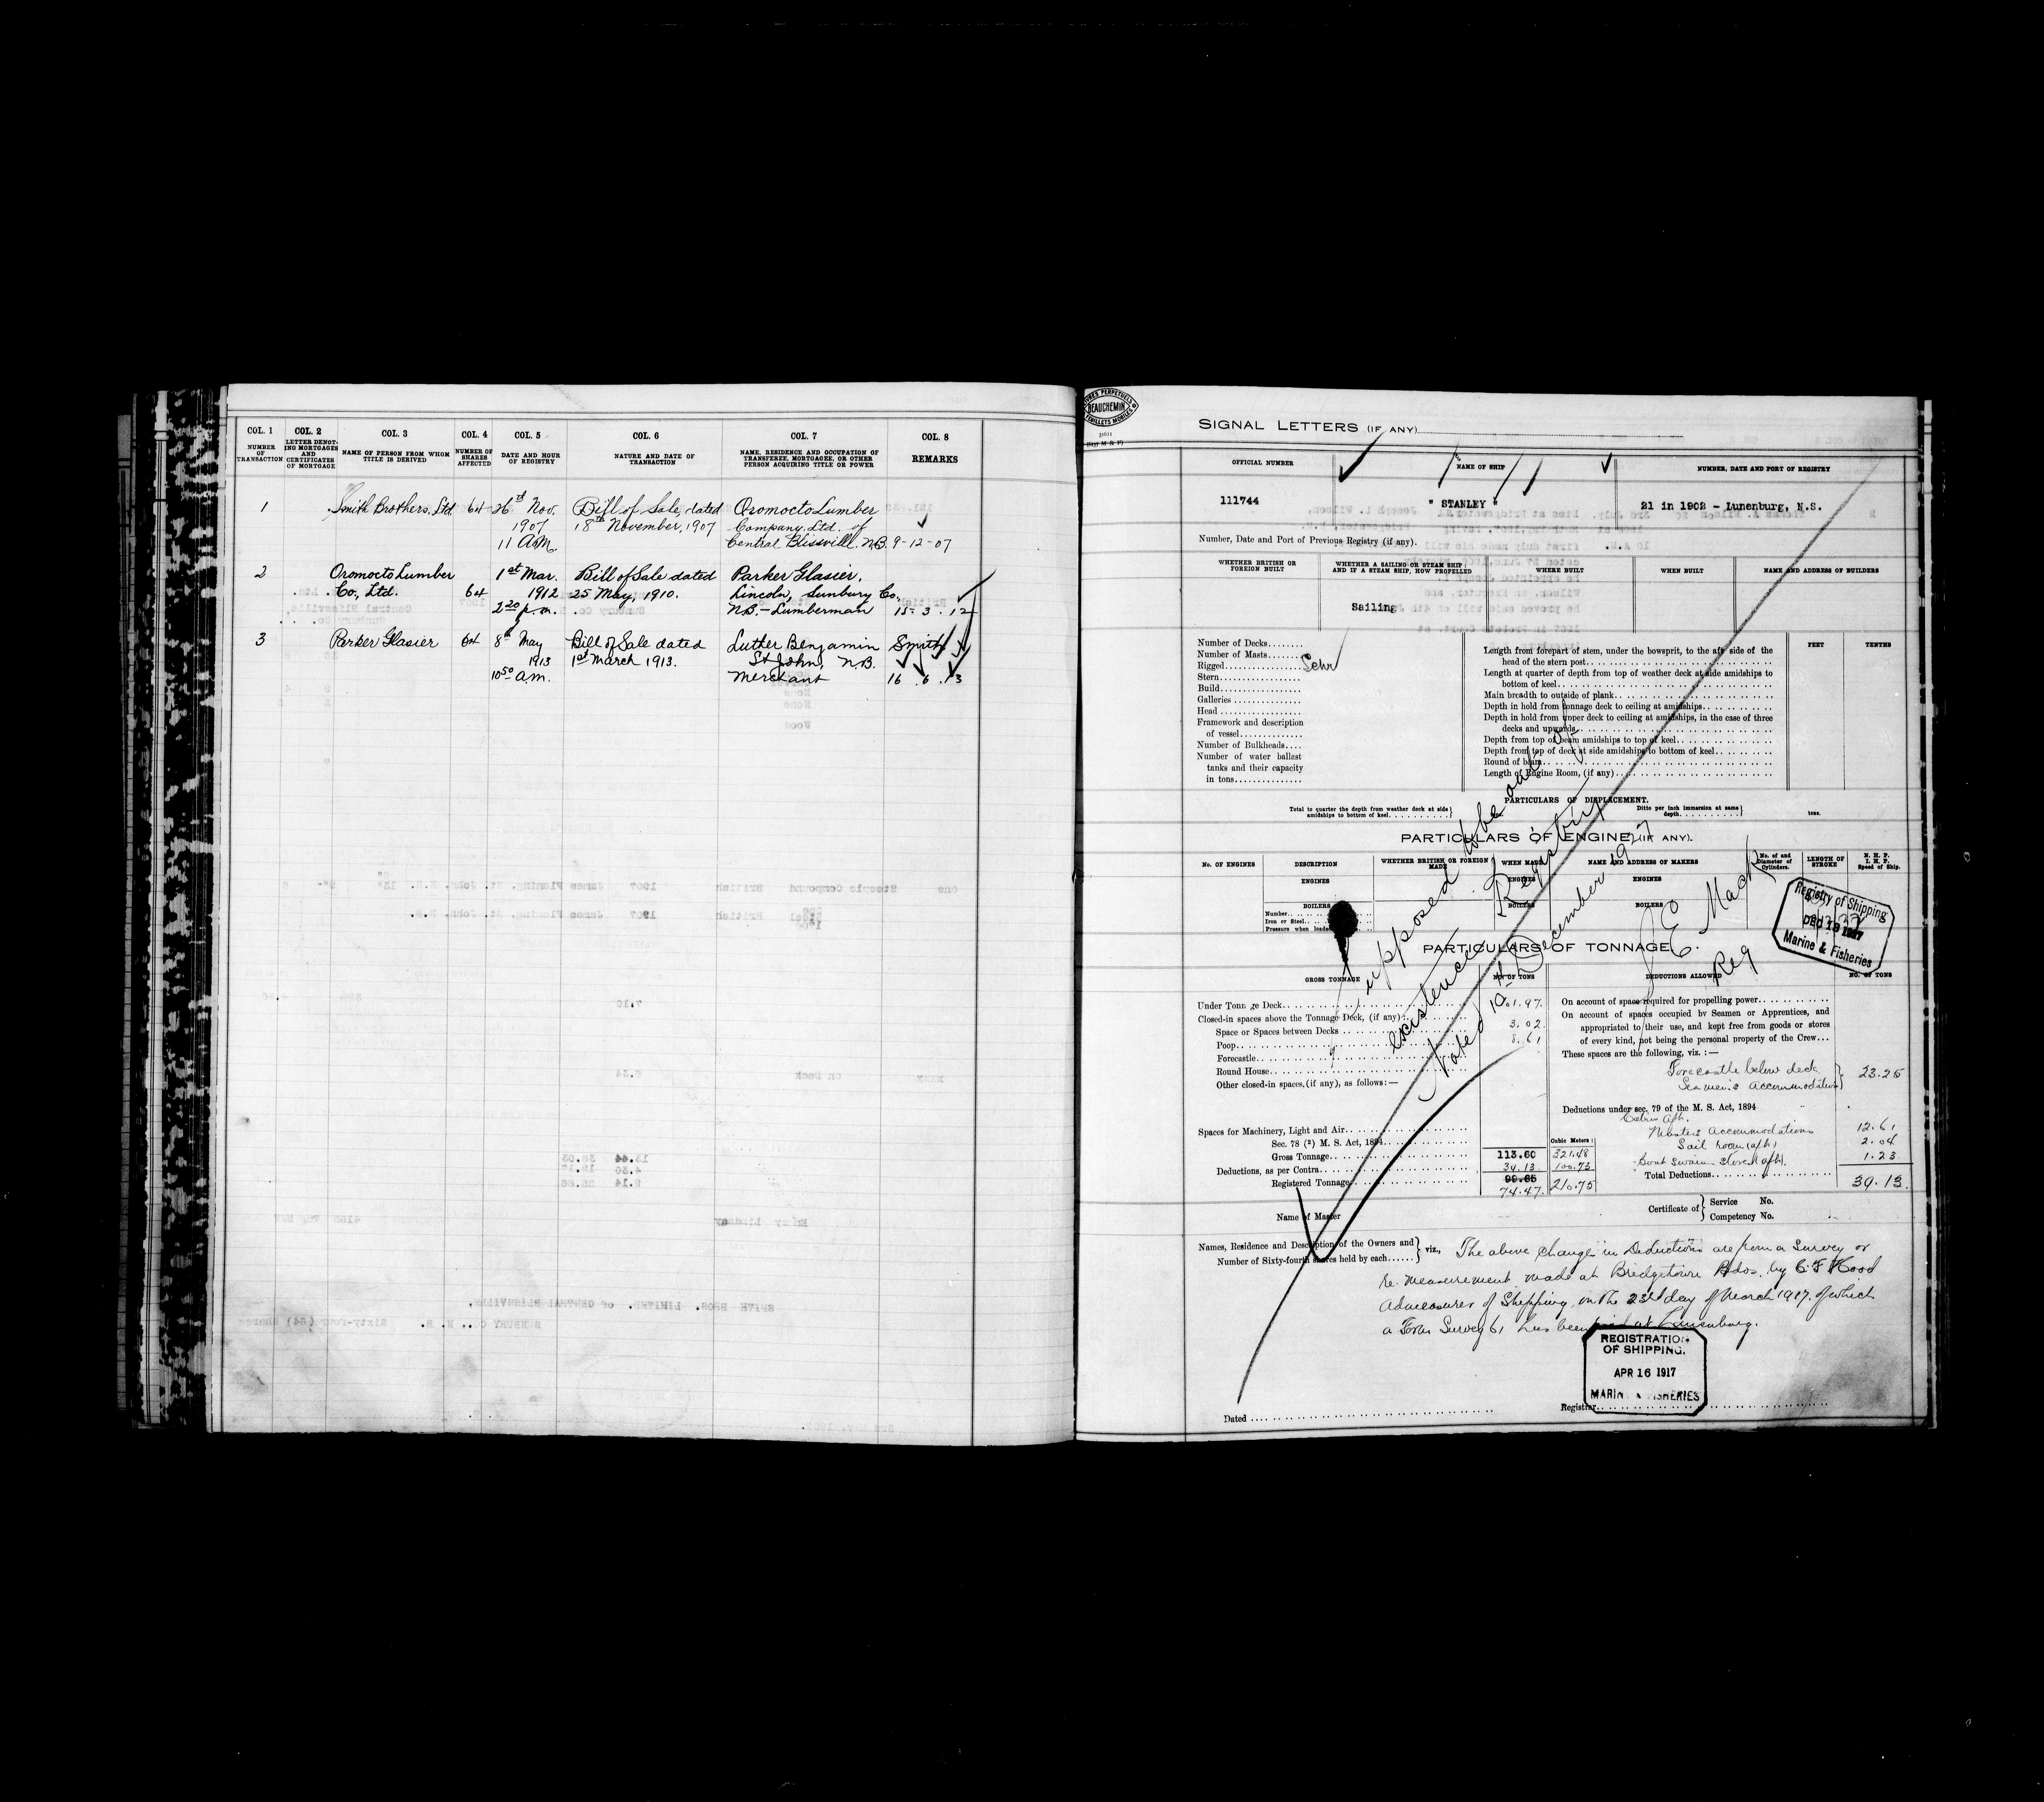 COL. 1
NUMBER OF TRANSACTION
COL. 2
LETTER DENOTING MORTGAGES AND CERTIFICATES OF MORTGAGE
COL. 3
NAME OF PERSON FROM WHOM TITLE IS DERIVED
COL. 4
NUMBER OF SHARES AFFECTED
COL. 5
DATE AND HOUR OF REGISTRY
COL. 6
NATURE AND DATE OF TRANSACTION
COL. 7
NAME, RESIDENCE AND OCCUPATION OF TRANSFEREE, MORTGAGEE, OR OTHER PERSON ACQUIRING TITLE OR POWER
COL. 8
REMARKS
1 Smith Brothers, Ltd. 64 26th Nov. Bill of Sale, dated Oromocto Lumber
1907 18th November, 1907 Company Ltd. of
11 A.M. Central Blissville. N.B. 9-12-07
2 Oromocto Lumber 1st Mar. Bill of Sale dated Parker Glasier,
Co, Ltd. 64 1912 25 May, 1910. Lincoln, Sunbury Co.
2.20 p.m. N.B.-Lumberman 15-3.12
3 Parker Glasier 64 8th May Bill of Sale dated Luther Benjamin Smith
1913 1st March 1913. St John, N.B.
10.50 a.m. Merchant 16.6.13
BEAUCHEMIN
SIGNAL LETTERS (IF ANY)
OFFICIAL NUMBER
NAME OF SHIP
NUMBER, DATE AND PORT OF REGISTRY
111744 " STANLEY " 21 in 1902 - Lunenburg, N.S.
Number, Date and Port of Previous Registry (if any).
WHETHER BRITISH OR FOREIGN BUILT
WHETHER A SAILING OR STEAM SHIP; AND IF A STEAM SHIP, HOW PROPELLED
WHERE BUILT
WHEN BUILT
NAME AND ADDRESS OF BUILDERS
Sailing
Number of Decks
Number of Masts
Rigged Schr
Stern
Build
Galleries
Head
Framework and description
of vessel
Number of Bulkheads
Number of water ballast
tanks and their capacity
in tons
FEET TENTHS
Length from forepart of stem, under the bowsprit, to the aft side of the
head of the stern post
Length at quarter of depth from top of weather deck at side amidships to
bottom of keel
Main breadth to outside of plank
Depth in hold from tonnage deck to ceiling at amidships
Depth in hold from upper deck to ceiling at amidships, in the case of three
decks and upwards
Depth from top of beam amidships to top of keel
Depth from top of deck at side amidships to bottom of keel
Round of beam
Length of Engine Room, (if any)
PARTICULARS OF DISPLACEMENT.
Total to quarter the depth from weather deck at side
amidships to bottom of keel
Ditto per inch immersion at same
depth
tons.
PARTICULARS OF ENGINE (IF ANY).
No. OF ENGINES
DESCRIPTION
WHETHER BRITISH OR FOREIGN MADE
WHEN MADE
NAME AND ADDRESS OF MAKERS
No. of and Diameter of Cylinders.
LENGTH OF STROKE
N. H. P.
I. H. P.
Speed of Ship.
ENGINES ENGINES ENGINES
BOILERS BOILERS BOILERS
Number
Iron or Steel
Pressure when loaded
Supposed to be out of
existence. Registry
Noted 10th December 1927
J E Mack
Reg
Registry of Shipping
DEC 13 1927
Marine & Fisheries
PARTICULARS OF TONNAGE.
GROSS TONNAGE
No. OF TONS
DEDUCTIONS ALLOWED
No. OF TONS
Under Tonnage Deck 101.97
Closed-in spaces above the Tonnage Deck, (if any):
Space or Spaces between Decks 3.02
Poop 8.61
Forecastle
Round House
Other closed-in spaces, (if any), as follows:—
Spaces for Machinery, Light and Air
Sec. 78 (2) M. S. Act, 1894
Cubic Meters:
Gross Tonnage 113.60 321.48
Deductions, as per Contra 39.13 100.73
Registered Tonnage 99.65 210.75
74.47
On account of space required for propelling power
On account of spaces occupied by Seamen or Apprentices, and
appropriated to their use, and kept free from goods or stores
of every kind, not being the personal property of the Crew
These spaces are the following, viz.:—
Forecastle below deck
Seamen's Accommodation 23.25
Deductions under sec. 79 of the M. S. Act, 1894
Cabin Aft.
Masters Accommodations 12.61
Sail room (aft) 2.04
Boatswains Stores (aft). 1.23
Total Deductions 39.13
Name of Master
Certificate of Service No.
Competency No.
Names, Residence and Description of the Owners and
Number of Sixty-fourth shares held by each
viz., The above change in Deductions are from a Survey or
re-measurement made at Bridgetown Bdos. by C F Hood
Admeasurer of Shipping, on the 23rd day of March 1917. of which
a Form Survey 61 has been at Lunenburg.
REGISTRATION
OF SHIPPING.
APR 16 1917
MARINE & FISHERIES
Dated
Registrar